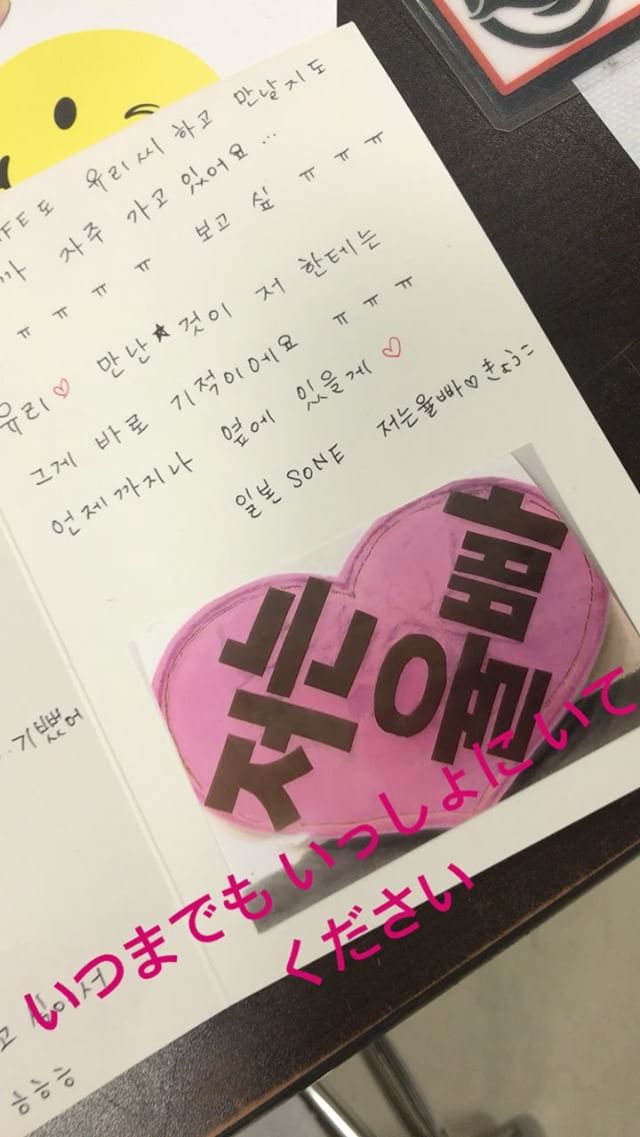 FE도 유리씨 하고 만날지도
까 자주 가고 있어요...
ㅠㅠㅠㅠ 보고 싶 ㅠㅠㅠ
유리♡ 만난★것이 저 한테는
그게 바로 기적이에요 ㅠㅠㅠ
언제까지나 옆에 있을게♡
일본 SONE 저는율빠♡きょうこ
저는
율빠
..기뻤어
고 싶어서
ㅎㅎㅎ
いつまでも いっしょに いて
ください